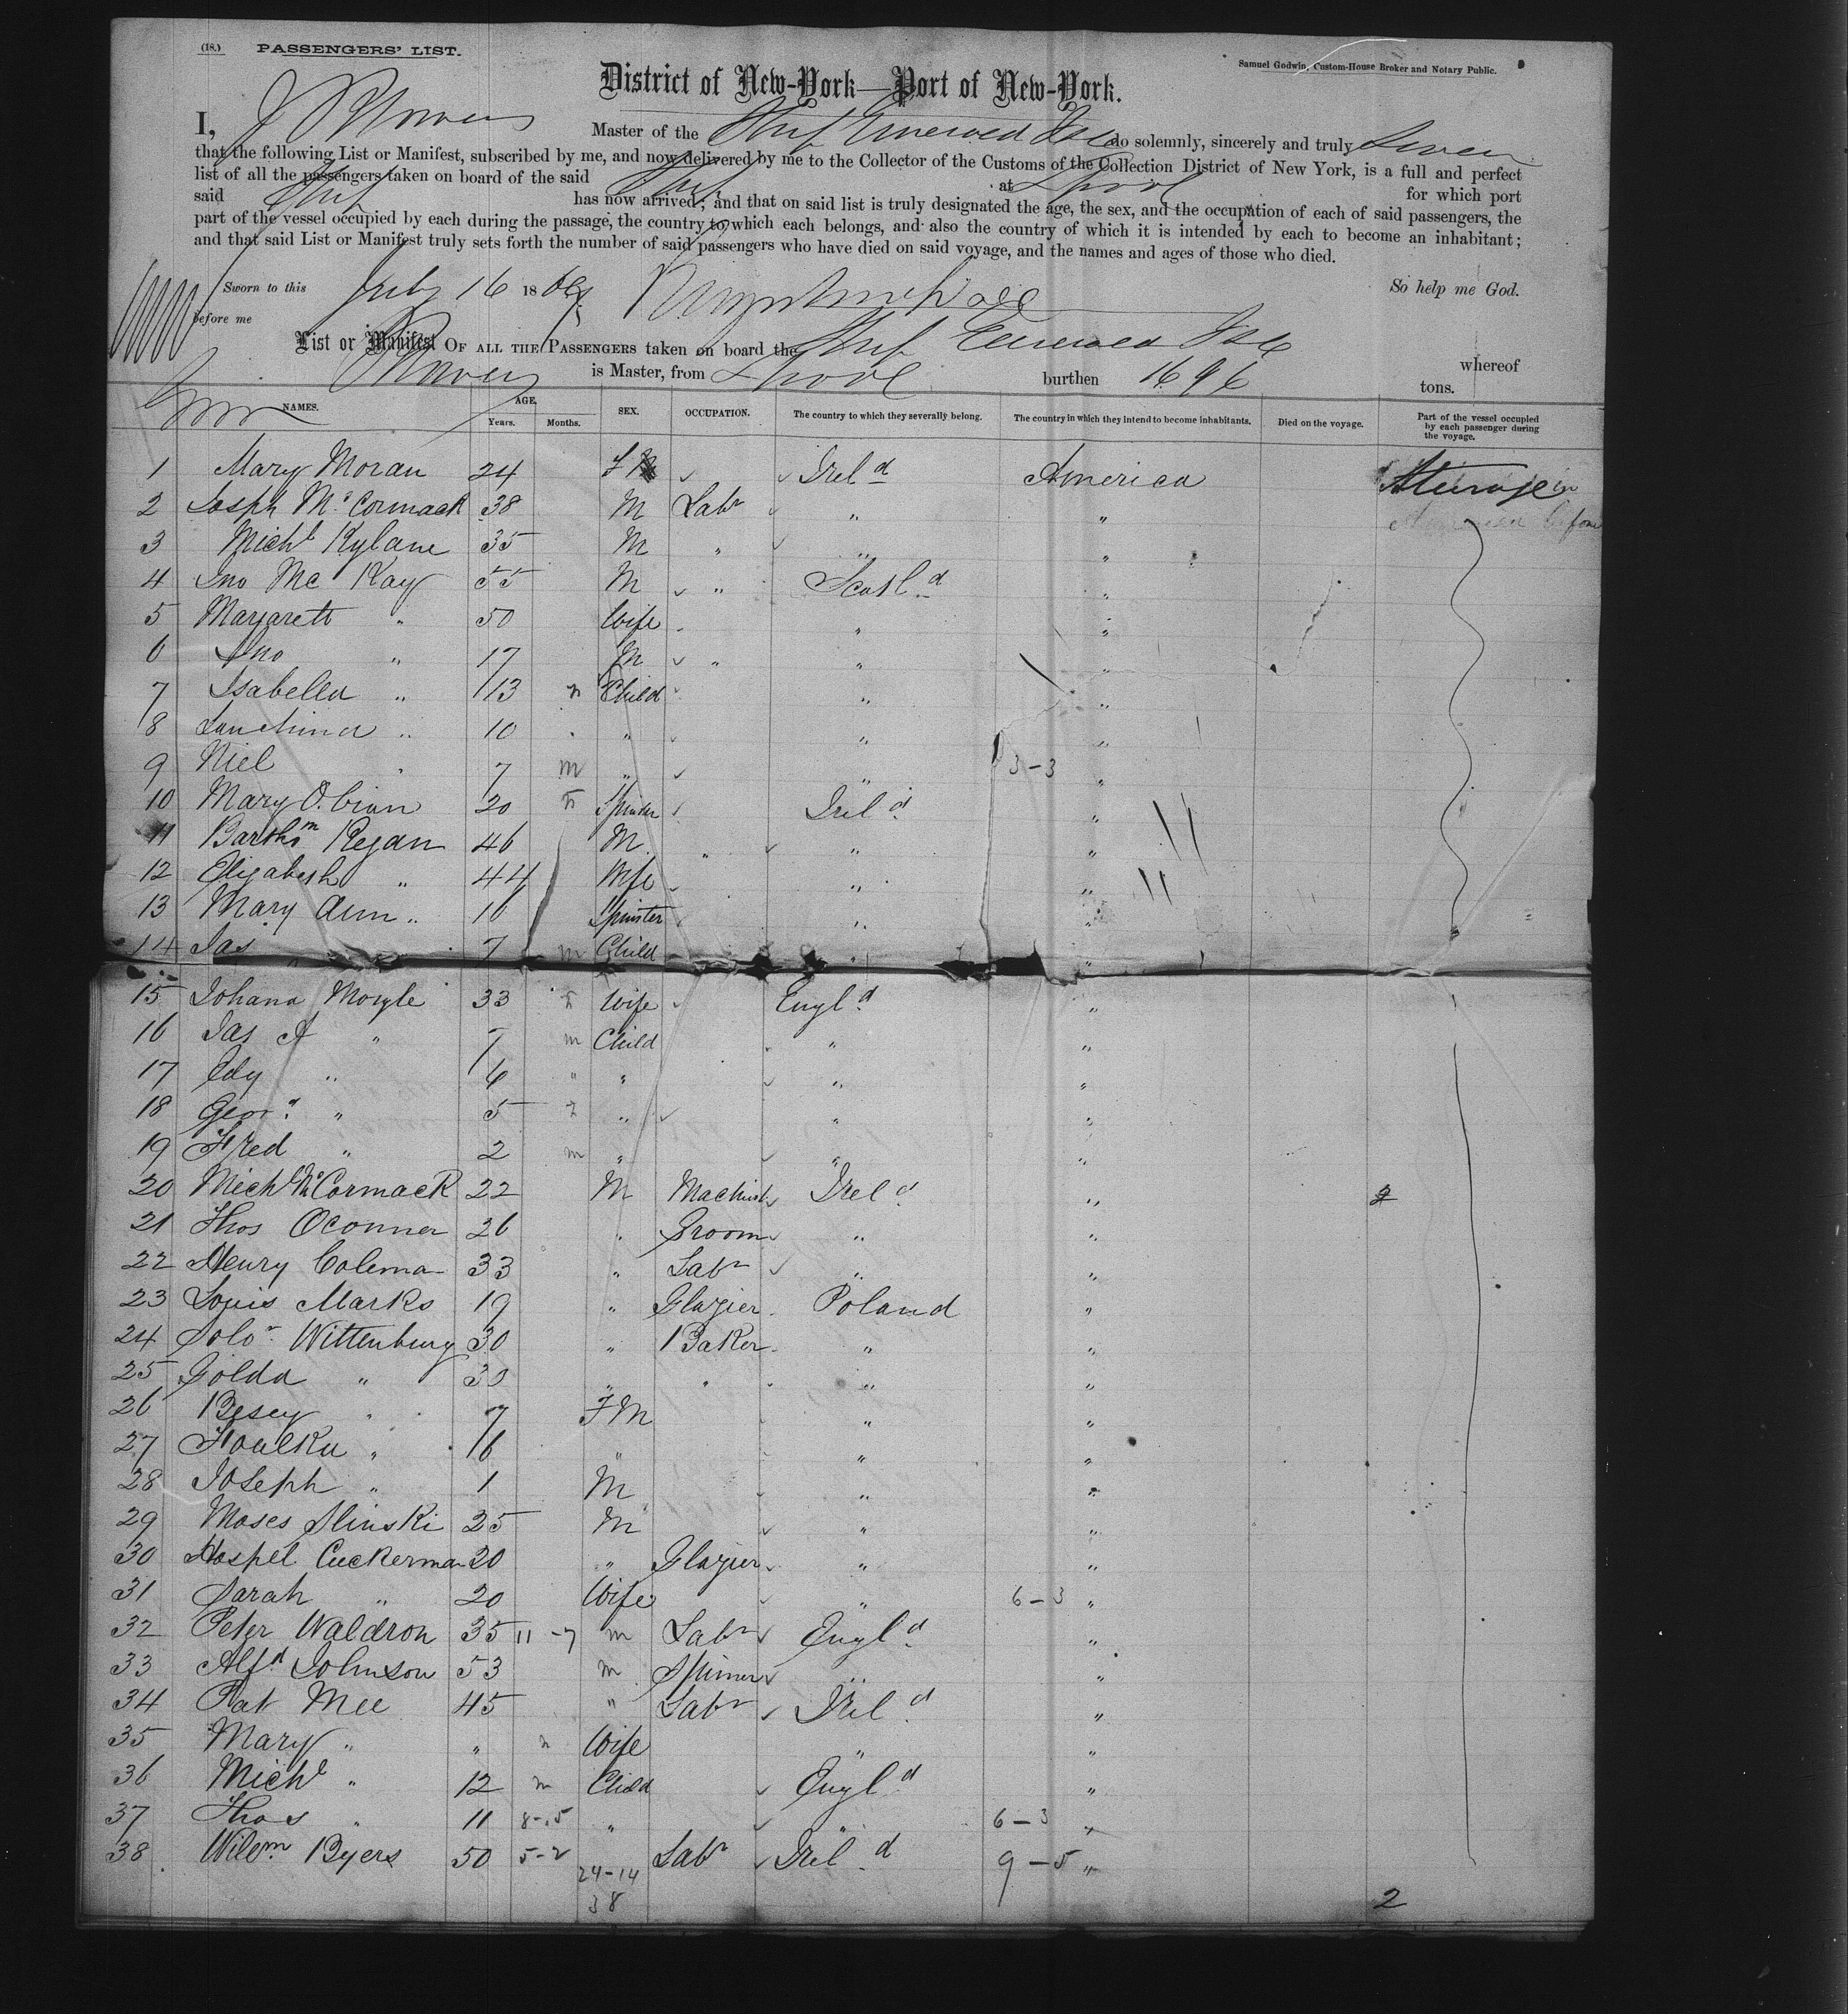 (18.) PASSENGERS' LIST.
Samuel Godwin, Custom-House Broker and Notary Public.
District of New-York—Port of New-York.
I, Master of the Ship Emerald Isle do solemnly, sincerely and truly Swear
that the following List or Manifest, subscribed by me, and now delivered by me to the Collector of the Customs of the Collection District of New York, is a full and perfect
list of all the passengers taken on board of the said Ship at Lpool for which port
said Ship has now arrived; and that on said list is truly designated the age, the sex, and the occupation of each of said passengers, the
part of the vessel occupied by each during the passage, the country to which each belongs, and also the country of which it is intended by each to become an inhabitant;
and that said List or Manifest truly sets forth the number of said passengers who have died on said voyage, and the names and ages of those who died.
Sworn to this July 16 18 So help me God.
before me
List or Manifest OF ALL THE PASSENGERS taken on board the Ship Emerald Isle whereof
is Master, from Lpool burthen 1696 tons.
NAMES. AGE. Years. Months. SEX. OCCUPATION. The country to which they severally belong. The country in which they intend to become inhabitants. Died on the voyage. Part of the vessel occupied by each passenger during the voyage.
1 Mary Moran 24 F Irel d America Steerage
2 Joseph Mc Cormack 38 M Labr " "
3 Michl Kylane 35 M " " "
4 Jno Mc Kay 55 M " Scotl d "
5 Margarett " 50 Wife " "
6 Jno " 17 M " " "
7 Isabella " 13 Child " "
8 " 10 " " "
9 Niel " 7 m " " 3-3 "
10 Mary O.brian 20 Spinster Irel d "
11 Bartho m Regan 46 M " " "
12 Elizabeth " 44 Wife " "
13 Mary Ann " 16 Spinster " "
14 Jas 7 m Child " "
15 Johana Moyle 33 Wife Engl d "
16 Jas A " 7 m Child " "
17 Edy " 6 " " " "
18 Geor " 5 " " "
19 Fred " 2 m " " "
20 Michl Mc Cormack 22 M Machinist Irel d "
21 Thos Oconner 26 " Groom " "
22 Henry Colema 33 " Labr " "
23 Louis Marks 19 " Glazier Poland "
24 Solo r Wittenburg 30 " Baker " "
25 Golda " 30 " " " "
26 Besey " 7 F M " "
27 " 6 " " "
28 Joseph " 1 M " "
29 Moses Slinski 25 M " "
30 Hospel Cuckerman 20 " Glazier " "
31 Sarah " 20 Wife " 6-3 "
32 Peter Waldron 35 11-7 m Labr Engl d "
33 Alfd Johnson 53 m Spinner " "
34 Pat Mee 45 " Labr Irel d "
35 Mary " " Wife " "
36 Michl " 12 m Child Engl d "
37 Thos " 11 8-5 " " 6-3 "
38 Wilm Byers 50 5-2 Labr Irel d 9-5 "
24-14
38
2